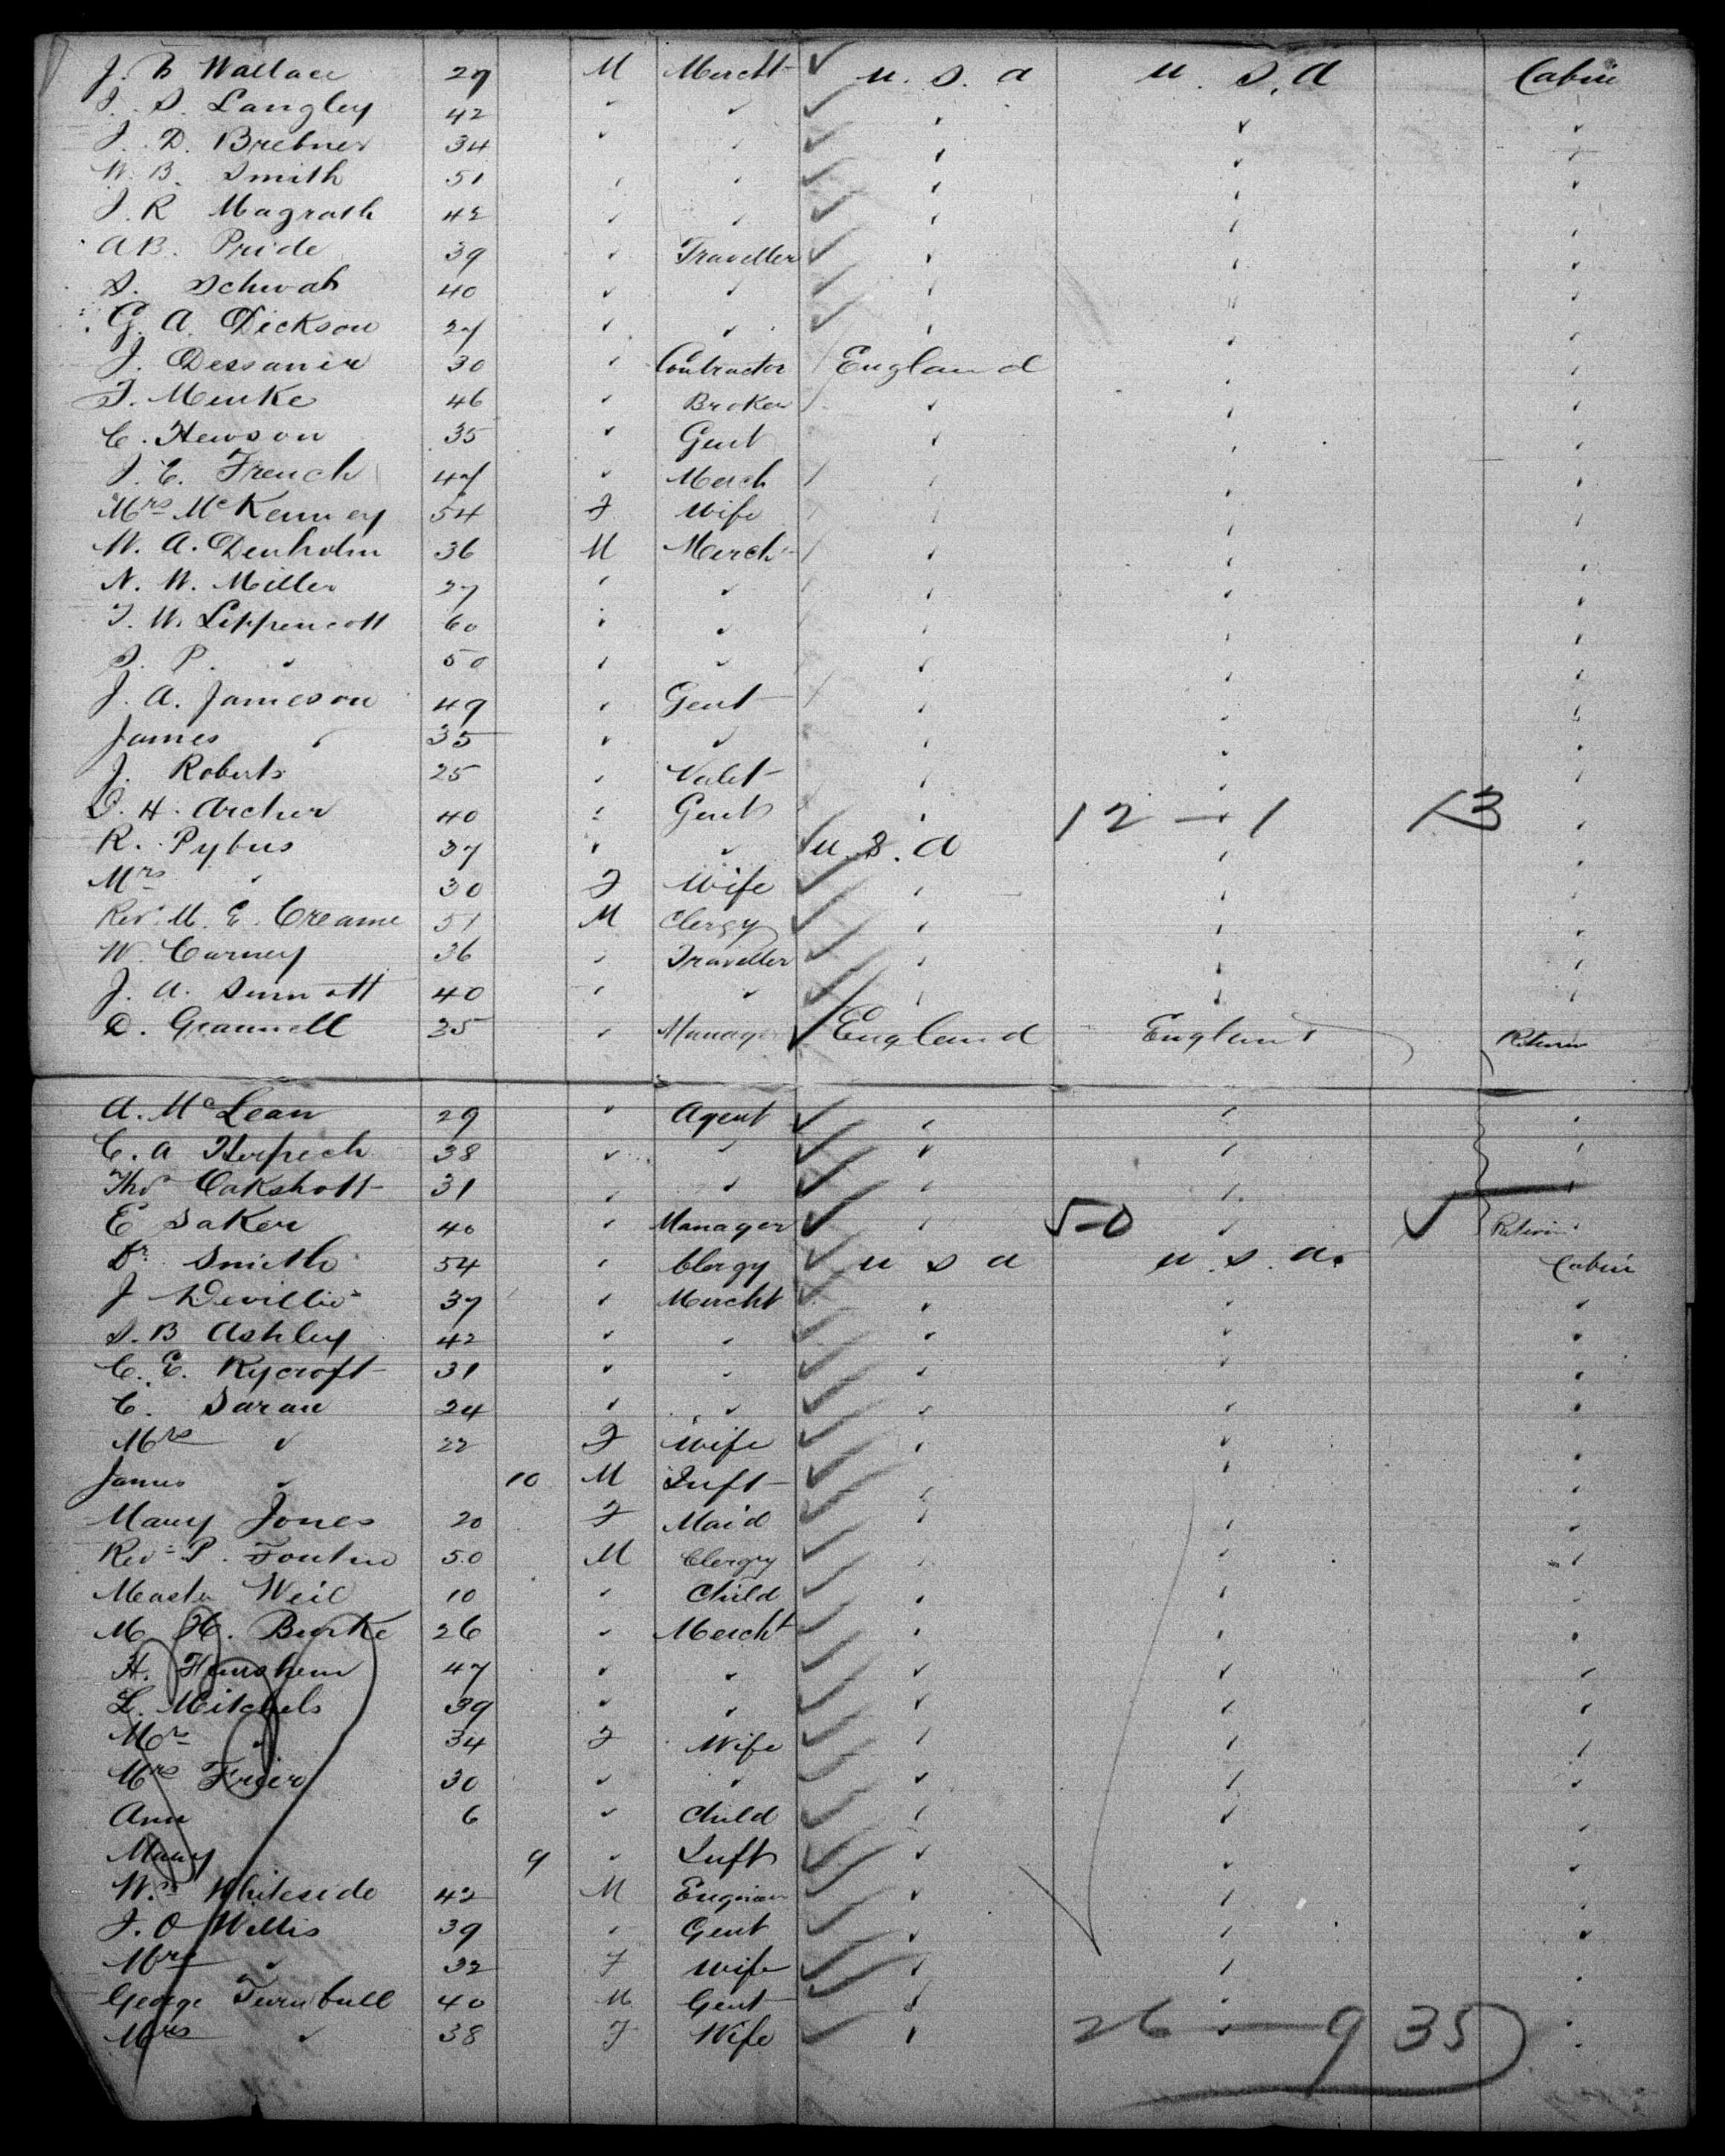 J. B Wallace 27 M Mercht u. s. a u. s. a Cabin
J. S. Langley 42 " "
J. D. Brebner 34 "
W. B. Smith 51 " "
J. R Magrath 42 " "
A B. Pride 39 " Traveller
S. Schwab 40 " "
G. A. Dickson 27 " "
J. Dessanir 30 " Contractor England
J. Menke 46 " Broker "
C. Hewson 35 " Gent "
J. E. French 47 " Merch "
Mrs McKenney 54 F Wife "
W. A. Denholm 36 M Merch "
N. W. Miller 27 " " "
J. W. Lippencott 60 " " "
S. P. " 50 " " "
J. A. Jameson 49 " Gent "
James " 35 " " "
J. Roberts 25 " Valet "
D. H. Archer 40 " Gent " 12 - 1 13
R. Pybus 37 " " u. s. a "
Mrs " 30 F Wife " "
Rev. M. E. Creame 51 M Clergy " "
W. Carney 36 " Traveller " "
J. A. Sinnott 40 " " " "
D. Grannell 35 " Manager England England Return
A. McLean 29 " Agent " " "
C. A 38 " " " " "
Thos Oakshott 31 " " " " "
E Saker 40 " Manager " 50 " Return
Dr. Smith 54 " Clergy u s a u. s. a. Cabin
J Devillie 37 " Mercht " " "
S. B Ashley 42 " " " " "
C. E. Rycroft 31 " " " " "
C. Saran 24 " " " " "
Mrs " 22 F Wife " " "
James " 10 M Inft " " "
Mary Jones 20 F Maid " " "
Revd P. 50 M Clergy " " "
Master Weil 10 " Child " " "
M. H. Burke 26 " Mercht " " "
H. 47 " " " " "
L. Mitchels 39 " " " " "
Mrs " 34 F Wife " " "
Mrs Frier 30 " " " " "
Ann 6 " Child " " "
Mary 9 " Inft " " "
W. Whiteside 42 M " " "
J. O Willis 39 " Gent " " "
Mrs " 32 F Wife " " "
George Turnbull 40 M Gent " " "
Mrs " 38 F Wife " 26 - 9 35 "